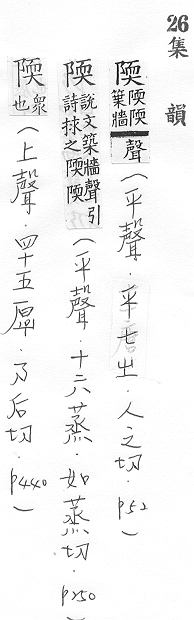 26集 韻
陾 陾陾築牆聲（平聲．七㞢．人之切．p52）
陾 說文築牆聲引詩捄之陾陾（平聲．十六蒸．如蒸切．p250）
陾 衆也（上聲．四十五厚．乃后切．p440）